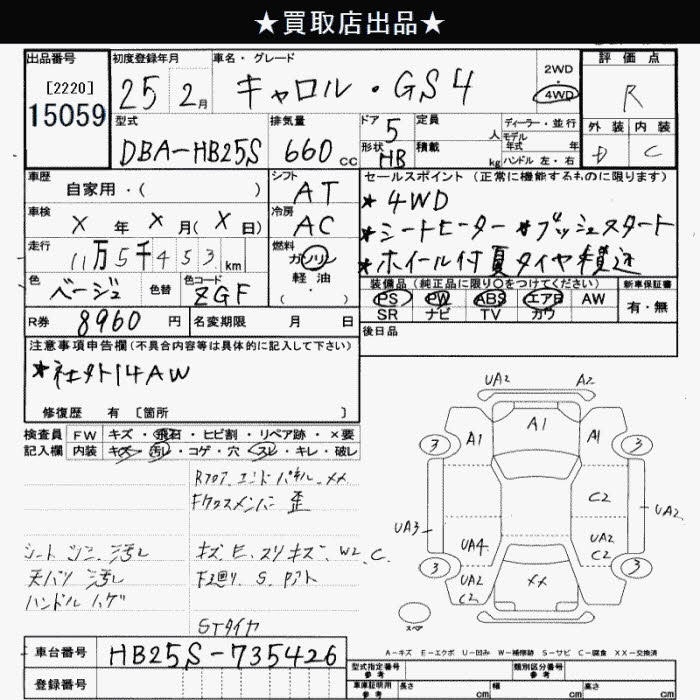 ★買取店出品★
出品番号 [2220] 15059
初度登録年月 25 2月
車名・グレード キャロル・GS4
2WD 4WD
評価点 R
外装 D 内装 C
型式 DBA-HB25S
排気量 660 cc
ドア 5
形状 HB
定員 人
積載 kg
ディーラー・並行
モデル年式 年
ハンドル 左・右
車歴 自家用・( )
シフト AT
車検 X年 X月(X日)
冷房 AC
走行 11万5千453km
燃料 ガソリン 軽油 ( )
色 ベージュ 色替 色コード ZGF
R券 8960円 名変期限 月 日
セールスポイント (正常に機能するものに限ります)
★4WD
★シートヒーター ★プッシュスタート
★ホイール付夏タイヤ積込
装備品(純正品に限り○をつけてください)
PS PW ABS エアB AW
SR ナビ TV カワ
新車保証書 有・無
後日品
注意事項申告欄(不具合内容等は具体的に記入して下さい)
★社外14AW
修復歴 有 [箇所 ]
検査員記入欄 FW キズ・飛石・ヒビ割・リペア跡・×要
内装 キズ・汚レ・コゲ・穴・スレ・キレ・破レ
Rフロア、エンドパネル、XX
Fクロスメンバー 歪
シート シミ、汚レ
キズ、E、スリキズ、W2、C
天バリ 汚レ
下廻り、S、
ハンドル ハゲ
STタイヤ
UA2 A2
A1
3 A1 A1 3
C2
UA3 UA2
UA4 UA2 C2
3 XX 3
UA2 C2
スペア
A-キズ E-エクボ U-凹み W-補修跡 S-サビ C-腐食 XX-交換済
車台番号 HB25S-735426
登録番号
型式指定番号 参考
類別区分番号 参考
車庫証明用 参考 長さ cm 幅 cm 高さ cm